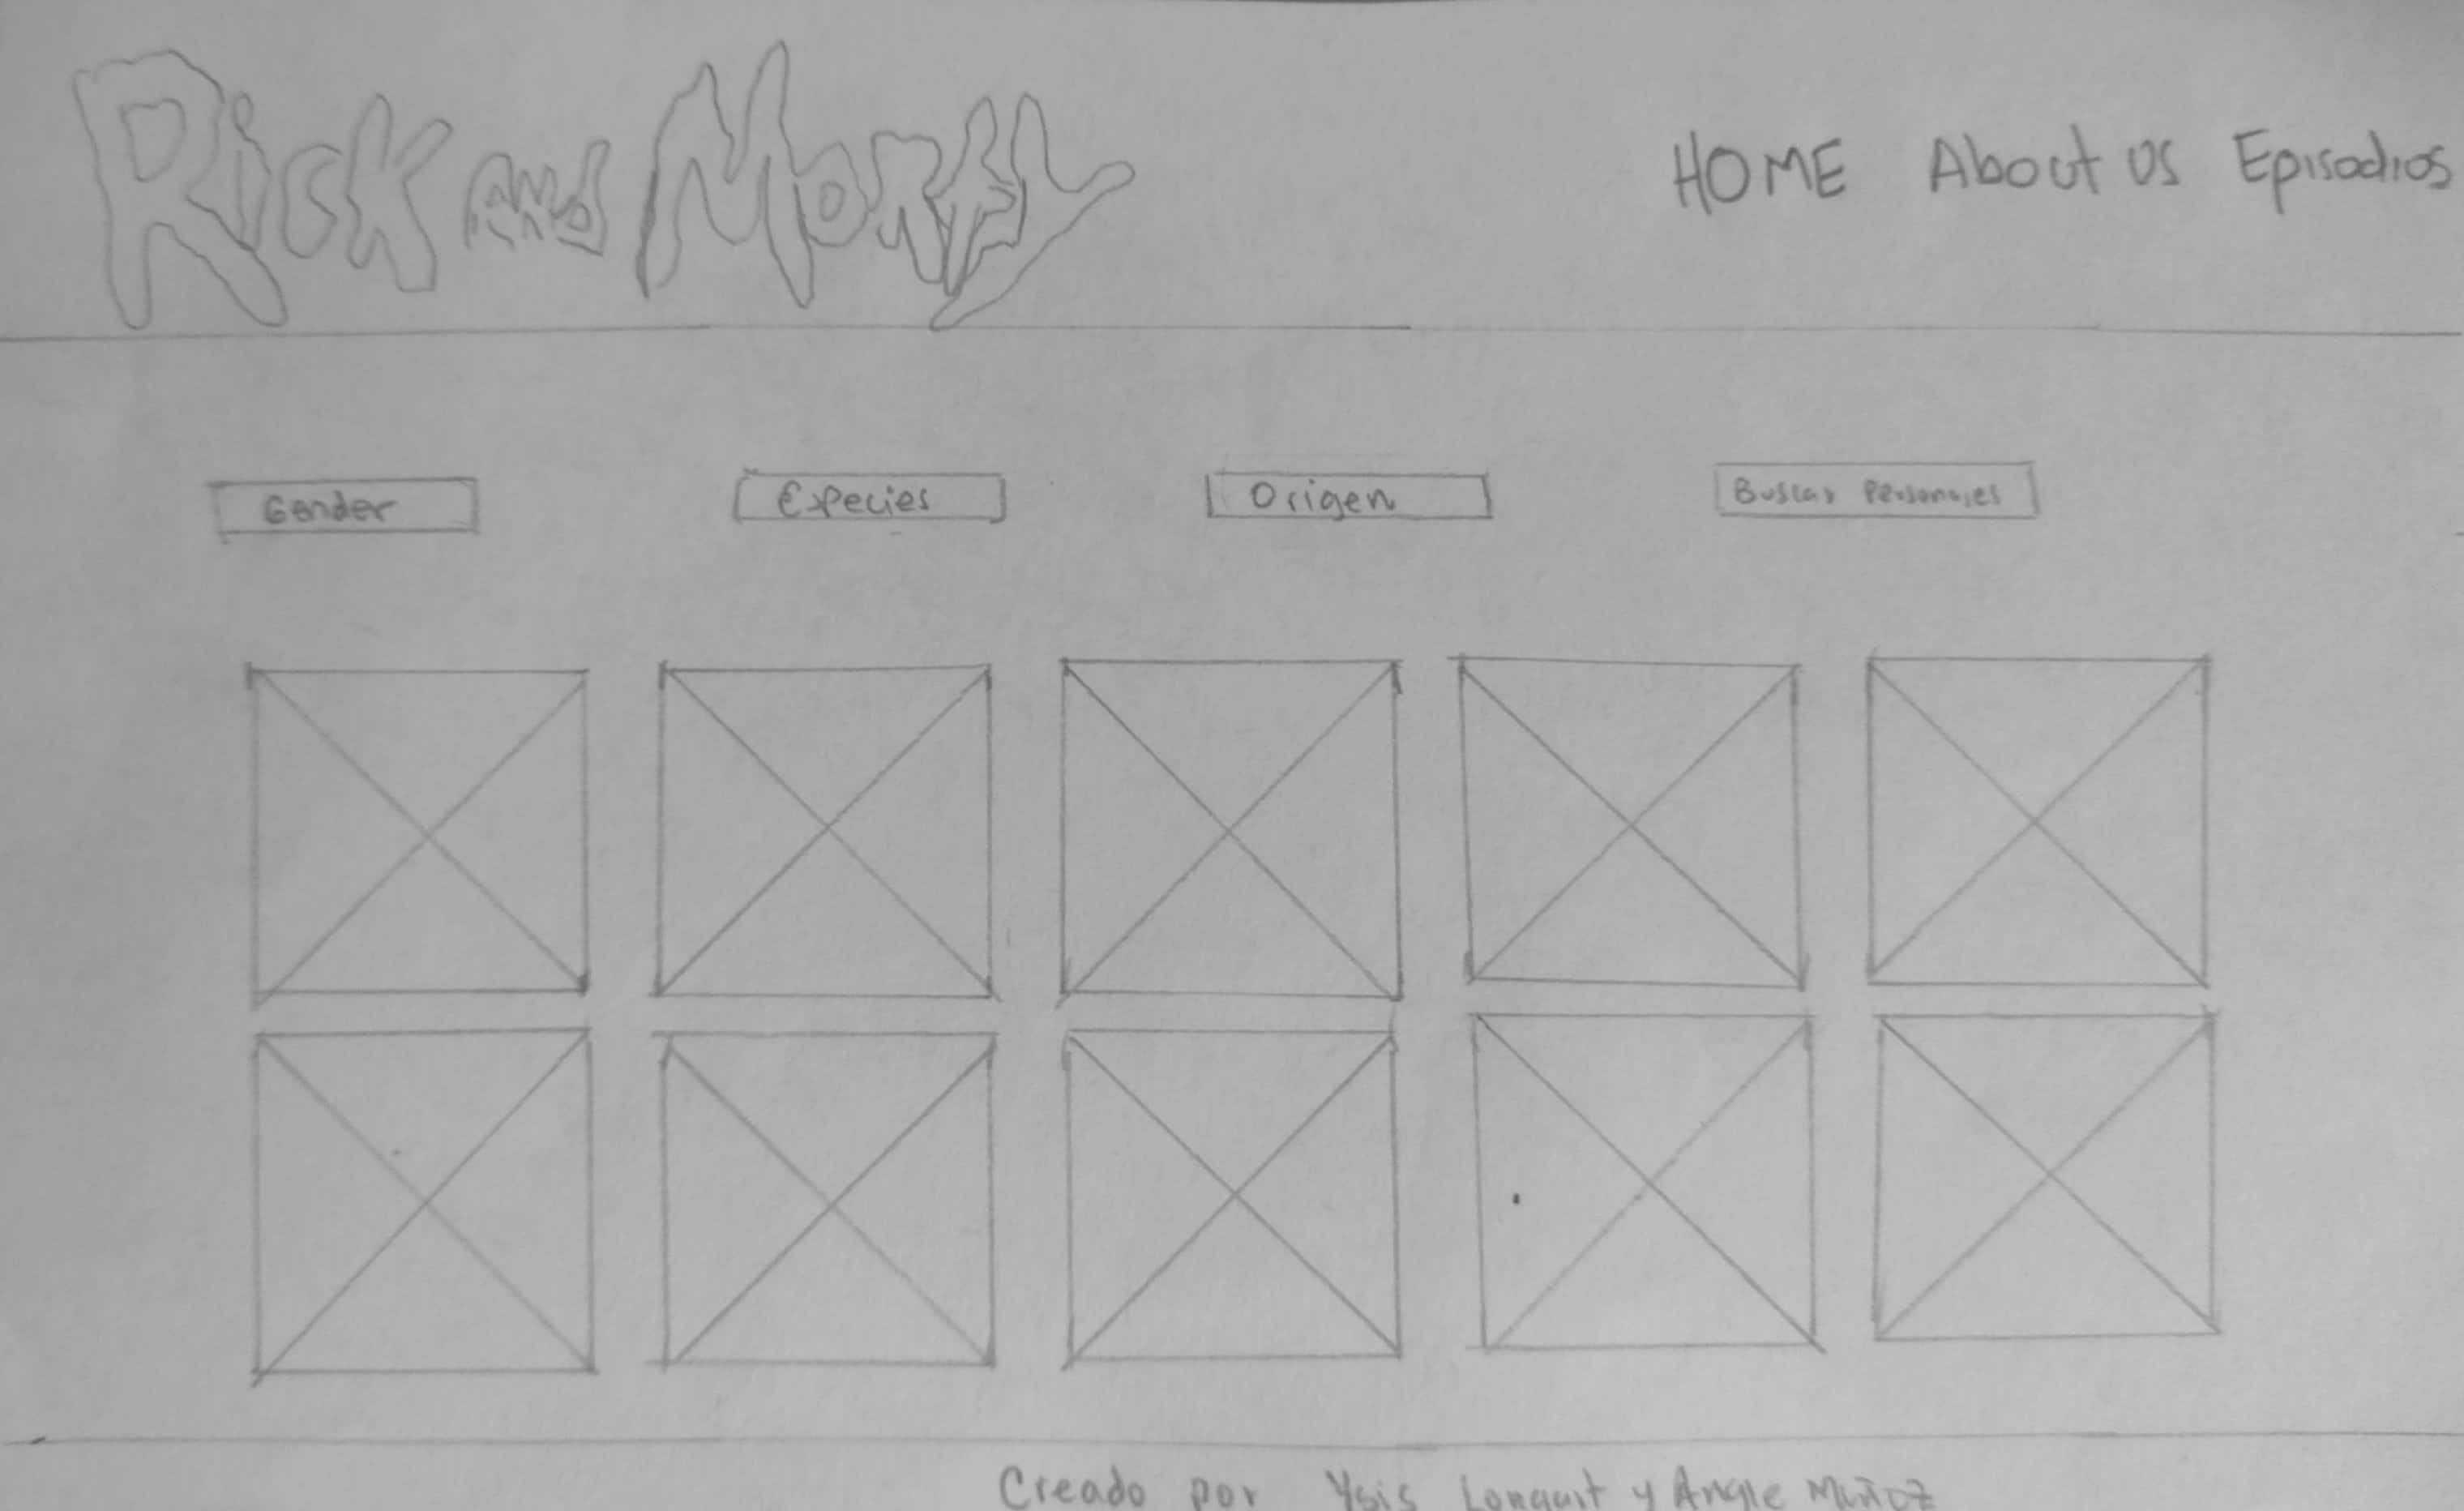 Rick and Morty
HOME About us Episodios
Gender Especies Origen Buscar Personajes
Creado por Ysis y Angie Muñoz